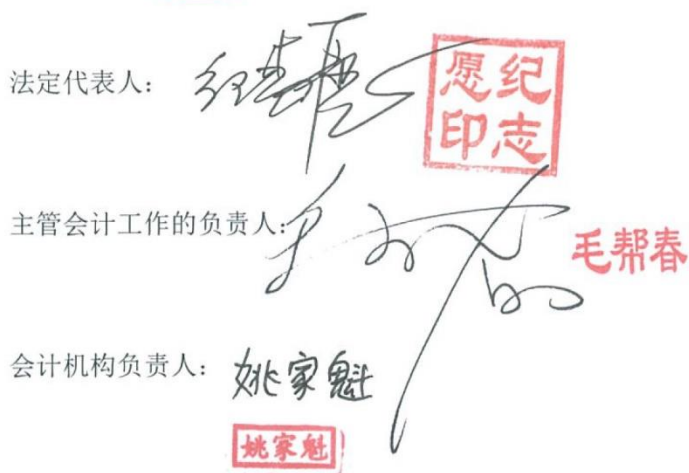 法定代表人: 纪志愿
纪志愿印
主管会计工作的负责人: 毛邦春
毛帮春
会计机构负责人: 姚家魁
姚家魁